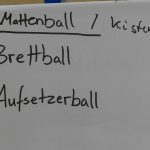 Mattenball / Kisten
Brettball
Aufsetzerball